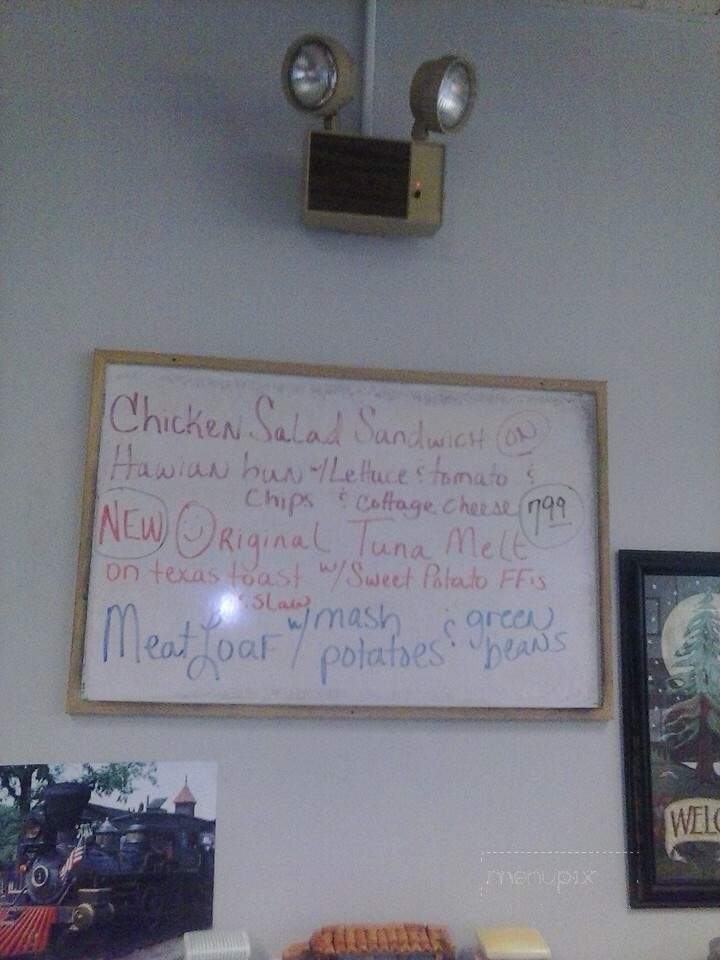 Chicken Salad Sandwich ON
Hawian bun w/Lettuce & tomato &
Chips & Cottage Cheese 799
NEW Original Tuna Melt
on texas toast w/Sweet Potato FFis
& Slaw
Meat Loaf w/ mash potatoes & green beans
WELC
menupix